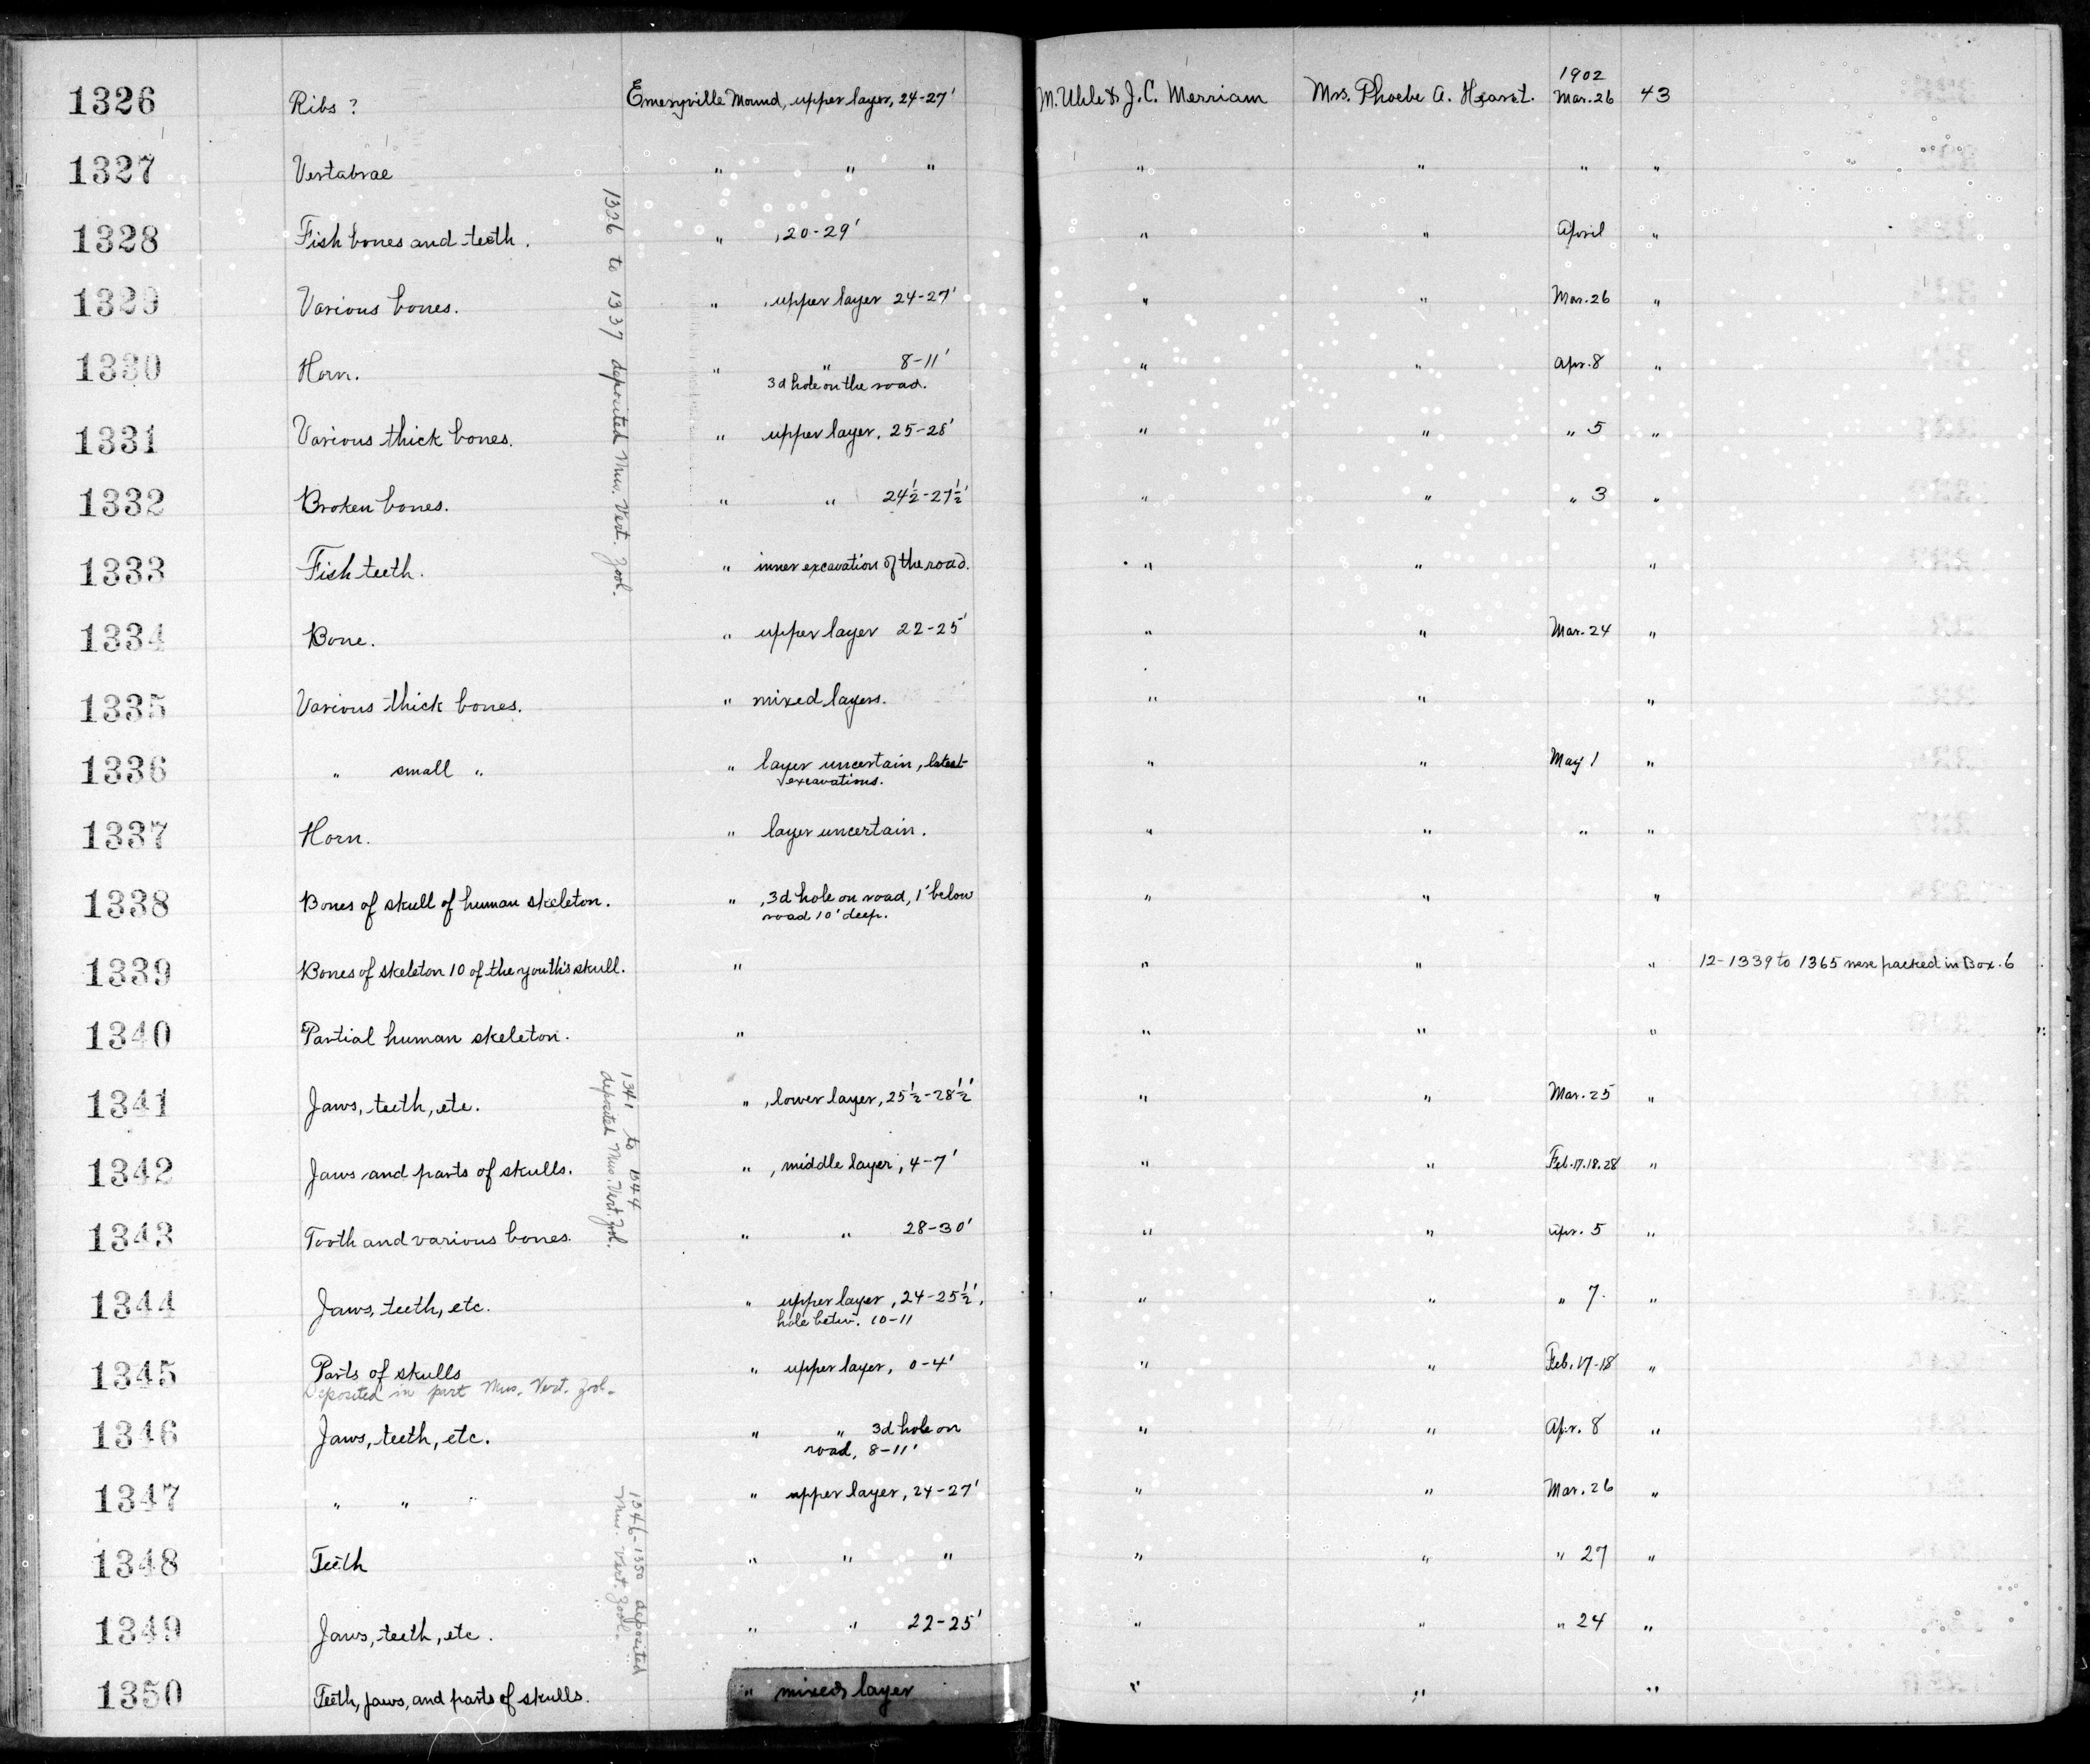 1902
1326 Ribs ? Emeryville Mound, upper layer, 24-27' M. Uhle & J.C. Merriam Mrs. Phoebe A. Hearst. Mar. 26 43
1327 Vertabrae " " " " " " "
1328 Fish bones and teeth. " , 20-29' " " April "
1329 Various bones. " , upper layer 24-27' " " Mar. 26 "
1330 Horn. " " 8-11' " " Apr. 8 "
3d hole on the road.
1331 Various thick bones. " upper layer, 25-28' " " " 5 "
1332 Broken bones. " " 24½-27½' " " " 3 "
1333 Fish teeth. " inner excavation of the road. " " "
1334 Bone. " upper layer 22-25' " " Mar. 24 "
1335 Various thick bones. " mixed layers. " " "
1336 " small " " layer uncertain, latest " " May 1 "
excavations.
1337 Horn. " layer uncertain. " " " "
1326 to 1337 deposited Mus. Vert. Zool.
1338 Bones of skull of human skeleton. " , 3d hole on road, 1' below " " "
road 10' deep.
1339 Bones of skeleton 10 of the youth's skull. " " " " 12-1339 to 1365 were packed in Box. 6
1340 Partial human skeleton. " " " "
1341 Jaws, teeth, etc. " , lower layer, 25½-28½' " " Mar. 25 "
1342 Jaws and parts of skulls. " , middle layer, 4-7' " " Feb. 17.18.28 "
1343 Tooth and various bones. " " 28-30' " " Apr. 5 "
1344 Jaws, teeth, etc. " upper layer, 24-25½', " " " 7. "
hole betw. 10-11
1341 to 1344
deposited Mus. Vert. Zool.
1345 Parts of skulls " upper layer, 0-4' " " Feb. 17-18 "
Deposited in part Mus. Vert. Zool.
1346 Jaws, teeth, etc. " " 3d hole on " " Apr. 8 "
road, 8-11'
1347 " " " " upper layer, 24-27' " " Mar. 26 "
1348 Teeth " " " " " " 27 "
1349 Jaws, teeth, etc. " " 22-25' " " " 24 "
1350 Teeth, jaws, and parts of skulls. " mixed layer " " "
1346-1350 deposited
Mus. Vert. Zool.